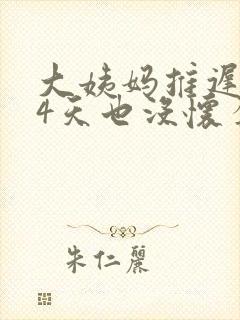 大姨妈推迟
4天也没怀
朱仁丽